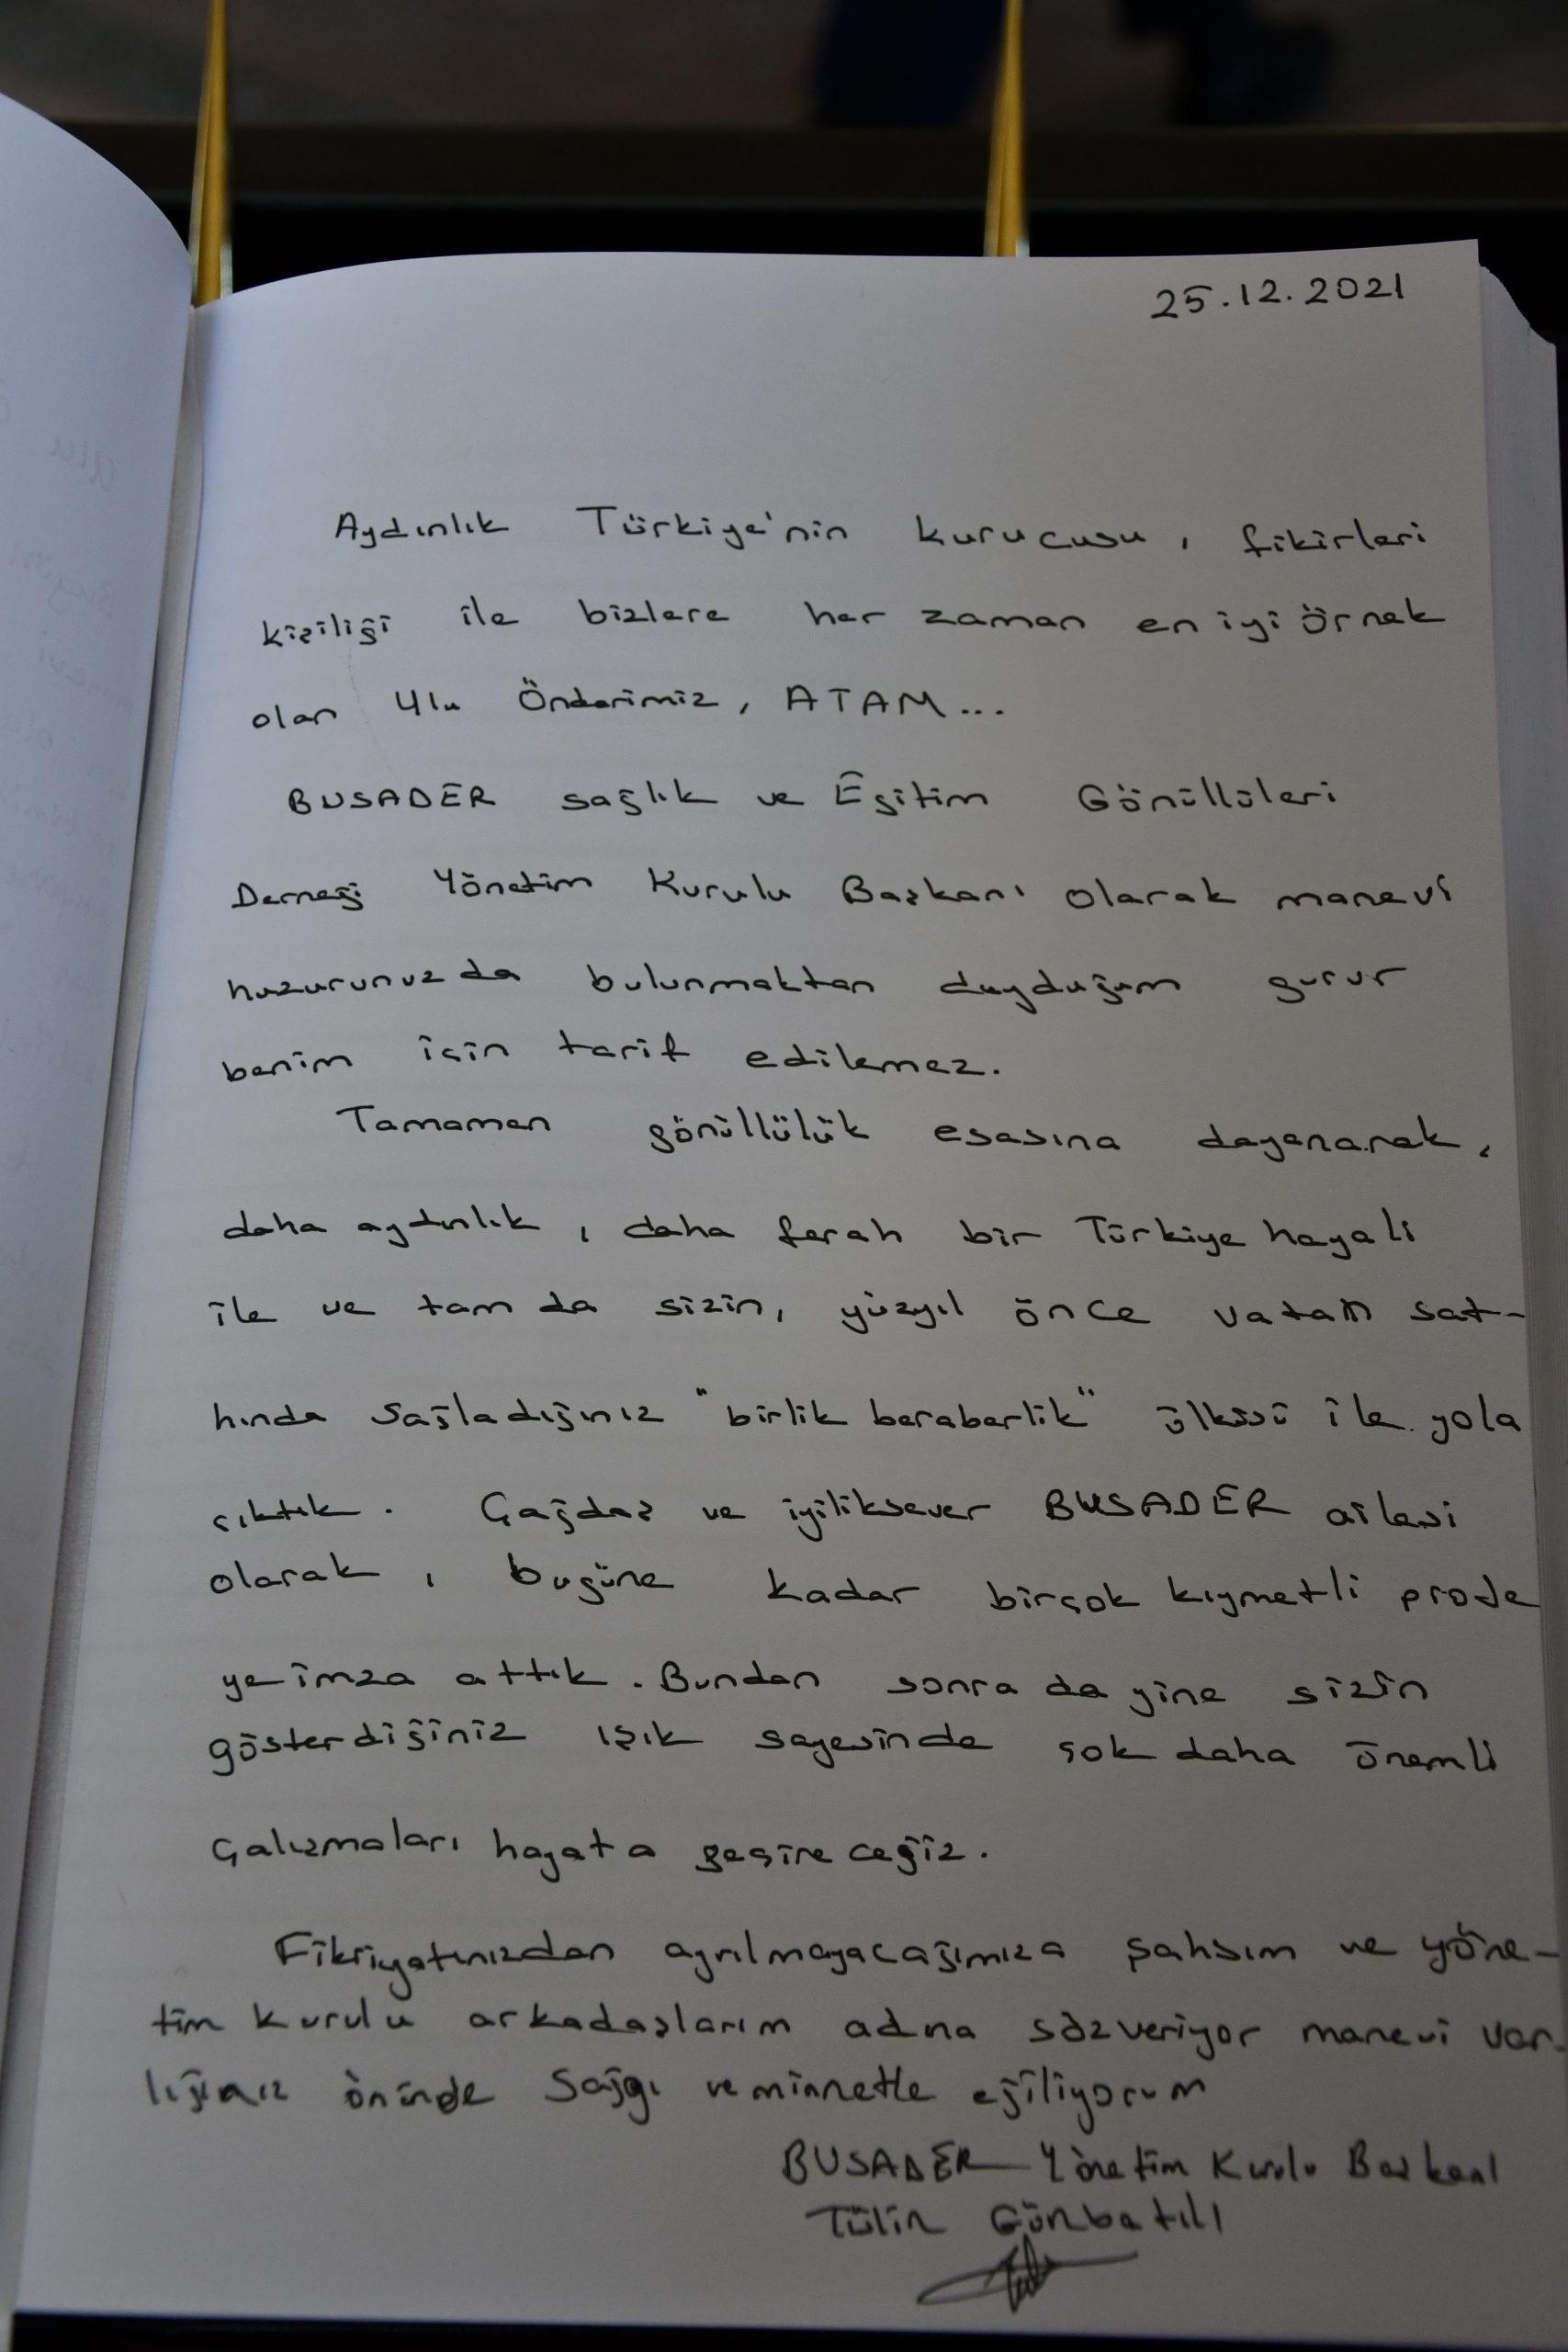 25.12.2021
Aydınlık Türkiye'nin kurucusu, fikirleri
kişiliği ile bizlere her zaman en iyi örnek
olan Ulu Önderimiz, ATAM...
BUSADER sağlık ve Eğitim Gönüllüleri
Derneği Yönetim Kurulu Başkanı olarak manevi
huzurunuzda bulunmaktan duyduğum gurur
benim için tarif edilemez.
Tamamen gönüllülük esasına dayanarak,
daha aydınlık, daha ferah bir Türkiye hayali
ile ve tam da sizin, yüzyıl önce vatan sat-
hında sağladığınız "birlik beraberlik" ülküsü ile yola
çıktık. Çağdaş ve iyiliksever BUSADER ailesi
olarak, bugüne kadar birçok kıymetli proje
ye imza attık. Bundan sonra da yine sizin
gösterdiğiniz ışık sayesinde çok daha önemli
çalışmaları hayata geçireceğiz.
Fikriyatınızdan ayrılmayacağımıza şahsım ve yöne-
tim kurulu arkadaşlarım adına sözveriyor manevi var-
lığınız önünde saygı ve minnetle eğiliyorum
BUSADER Yönetim Kurulu Başkanı
Tülin Günbatılı